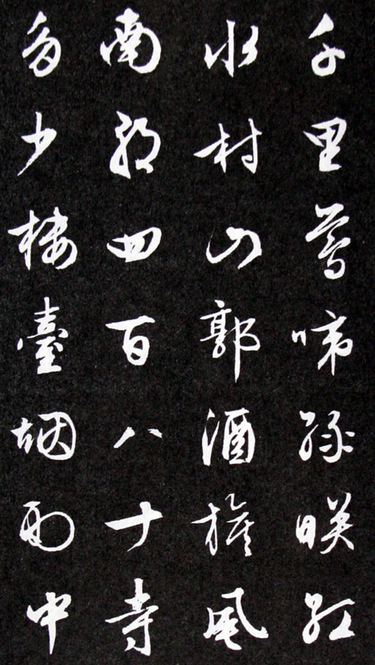 千里莺啼绿映红
水村山郭酒旗风
南朝四百八十寺
多少楼臺烟雨中